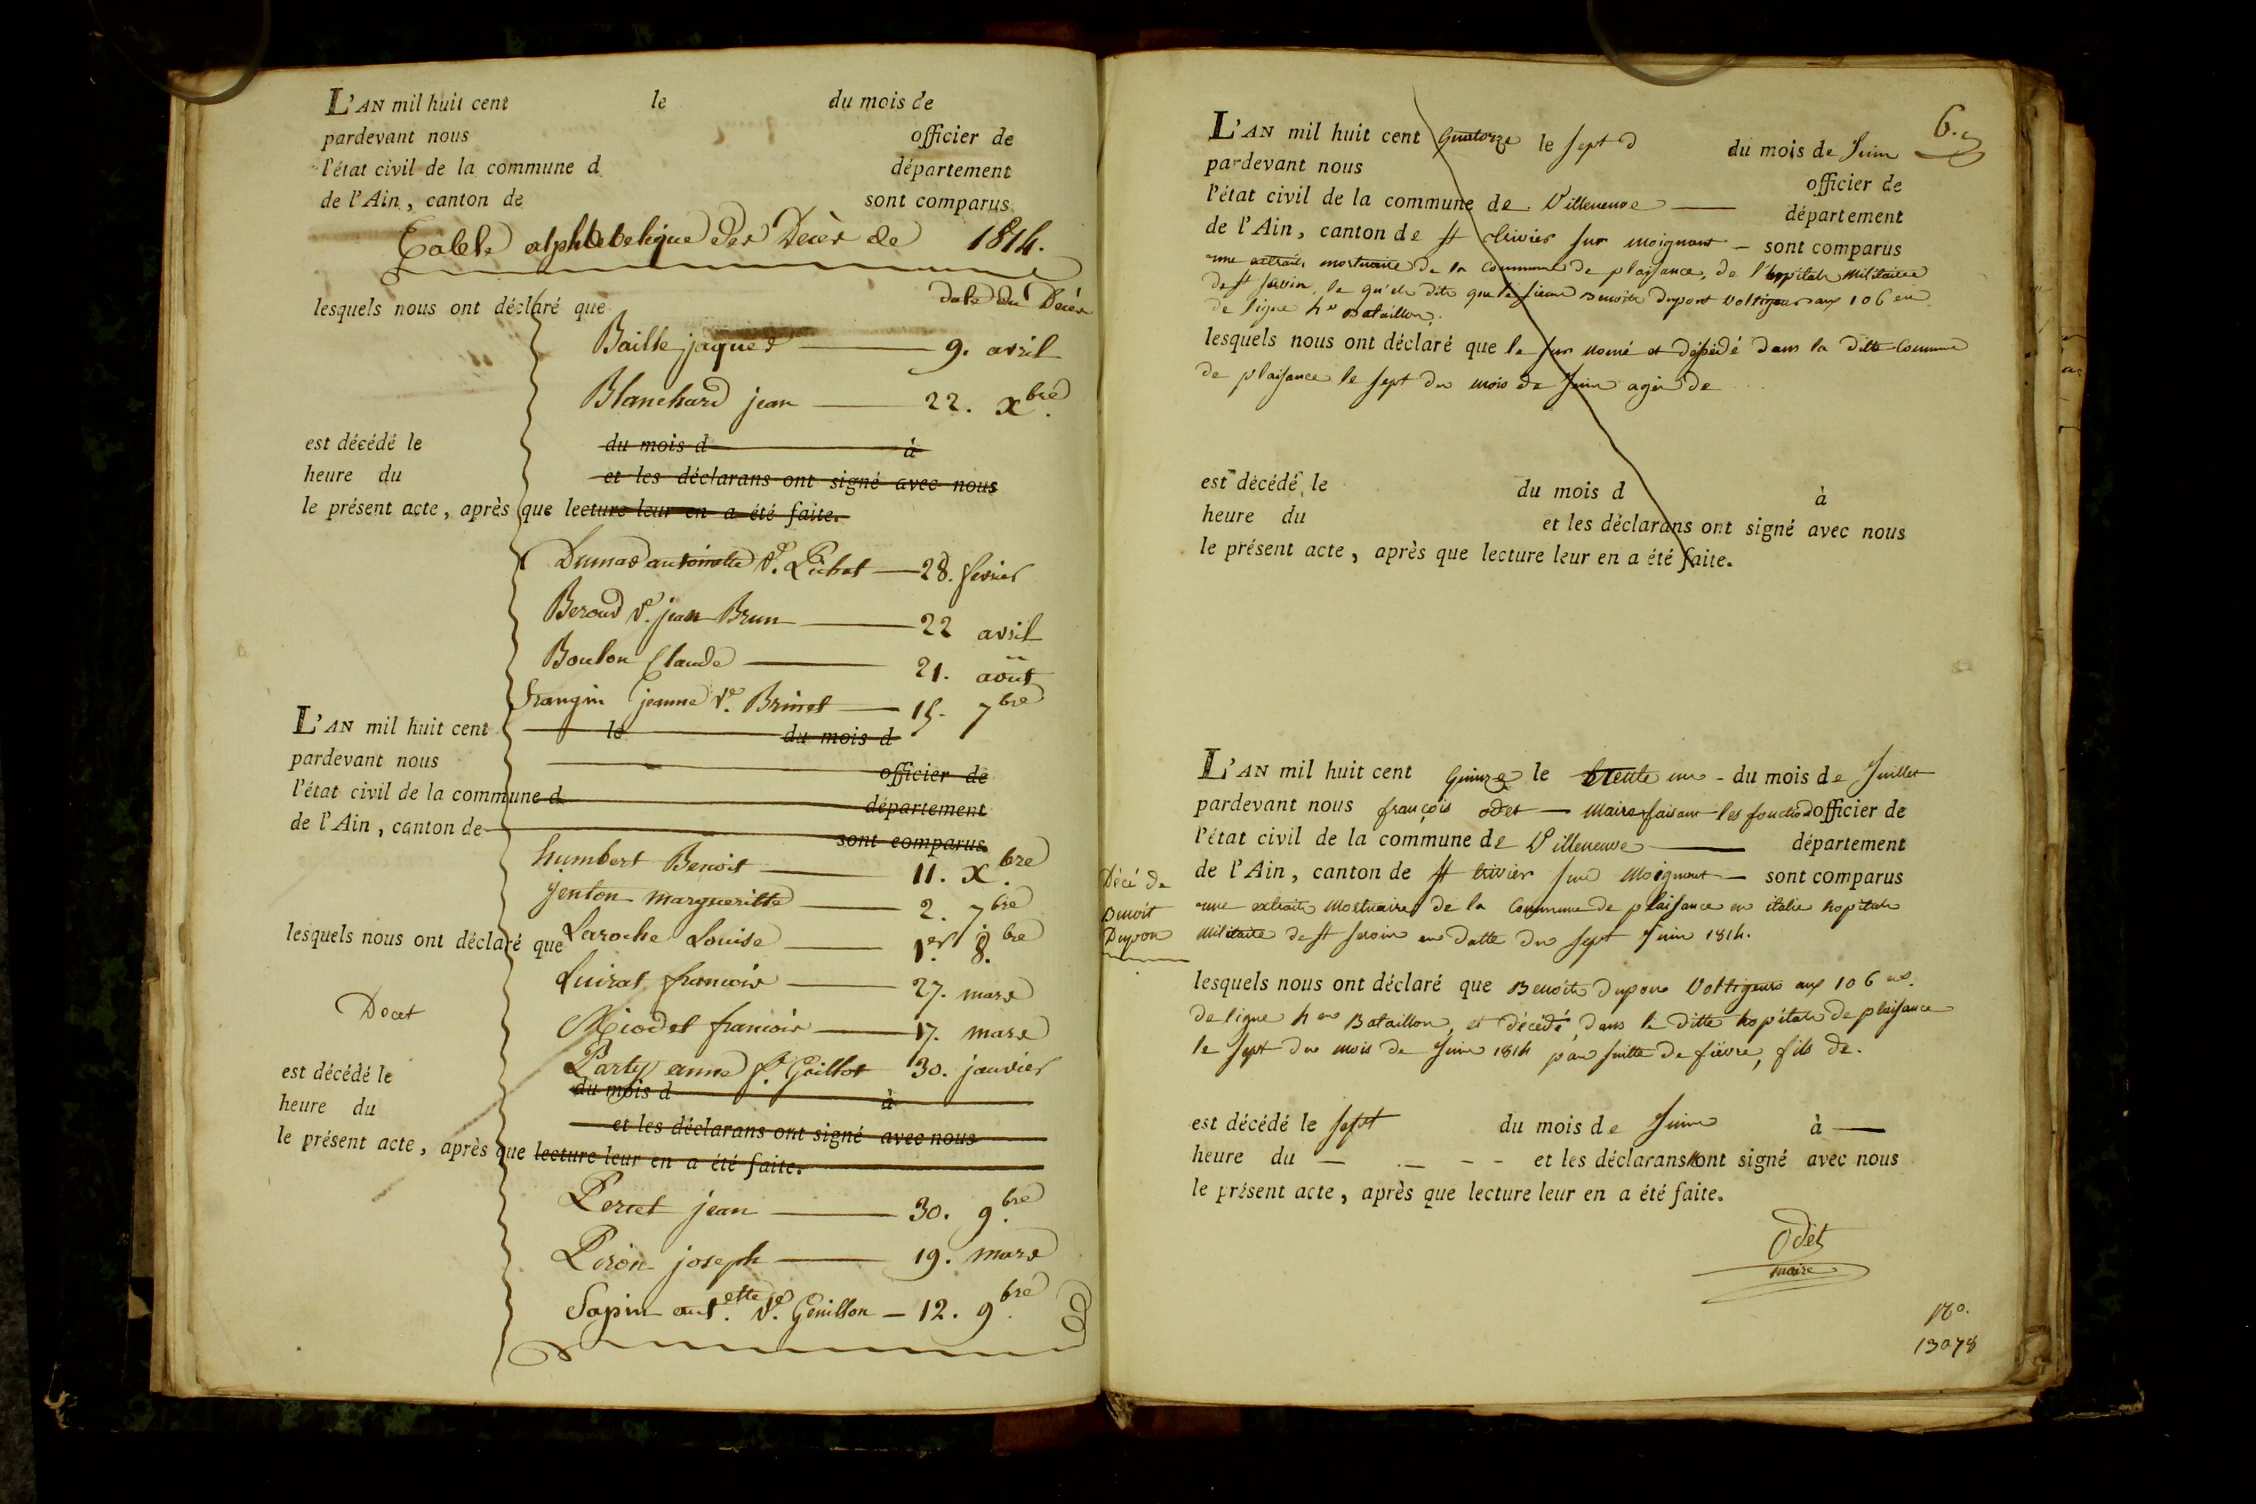 L'AN mil huit cent le du mois de
pardevant nous officier de
l'état civil de la commune d département
de l'Ain, canton de sont comparus
Table alphabetique des Décès de 1814.
date du Décès
lesquels nous ont déclaré que
Baille jaques 9. avril
Blanchard jean 22. xbre.
est décédé le du mois d à
heure du et les déclarans ont signé avec nous
le présent acte, après que lecture leur en a été faite.
Dumas antoinette ve. Pichet 28. fevrier
Beroud ve. jean Brun 22 avril
Boulon Claude 21. août
frangin jeanne ve. Brunet 15. 7bre
L'AN mil huit cent le du mois d
pardevant nous officier de
l'état civil de la commune d département
de l'Ain, canton de sont comparus
humbert Benoit 11. xbre.
jenton margueritte 2. 7bre
lesquels nous ont déclaré que
Laroche Louise 1er. 8bre.
Luirat francois 27. mars
Docet
Miodet francois 17. mars
Party anne fe. Gaillot 30. janvier
est décédé le du mois d à
heure du et les déclarans ont signé avec nous
le présent acte, après que lecture leur en a été faite.
Percet jean 30. 9bre.
Peron joseph 19. mars
Sapin antette. ve. Genillon 12. 9bre.
6.
L'AN mil huit cent quatorze le sept d du mois de Juin
pardevant nous officier de
l'état civil de la commune de Villeneuve département
de l'Ain, canton de st trivier sur moignant sont comparus
une extrait mortuaire de la Commune de plaisance, de l'hopitale Militaire
de st savin, le qu'ele dite que le sieur Benoite Dupont Voltigeur aux 106 em
de ligne 4e Bataillon.
lesquels nous ont déclaré que le sur nomé et dessédé dans la ditte Commune
de plaisance le sept du mois de Juin agée de
est décédé le du mois d à
heure du et les déclarans ont signé avec nous
le présent acte, après que lecture leur en a été faite.
L'AN mil huit cent quinze le trente un - du mois de Juillet
pardevant nous françois odet maire faisant les fonction officier de
l'état civil de la commune de Villeneuve département
de l'Ain, canton de st trivier sur Moignant sont comparus
Décé de
Benoit
Dupon
une extraite Mortuaire de la Commune de plaisance en italie hopitale
Militaire de st savin en datte du sept Juin 1814.
lesquels nous ont déclaré que Benoite dupon Voltigeur aux 106 me.
de ligne 4 em Bataillon, et décédé dans le ditte hopitale de plaisance
le sept du mois de Juin 1814 par suitte de fièvre, fils de.
est décédé le sept du mois de Juin à
heure du et les déclarans ont signé avec nous
le présent acte, après que lecture leur en a été faite.
Odet
maire
13078